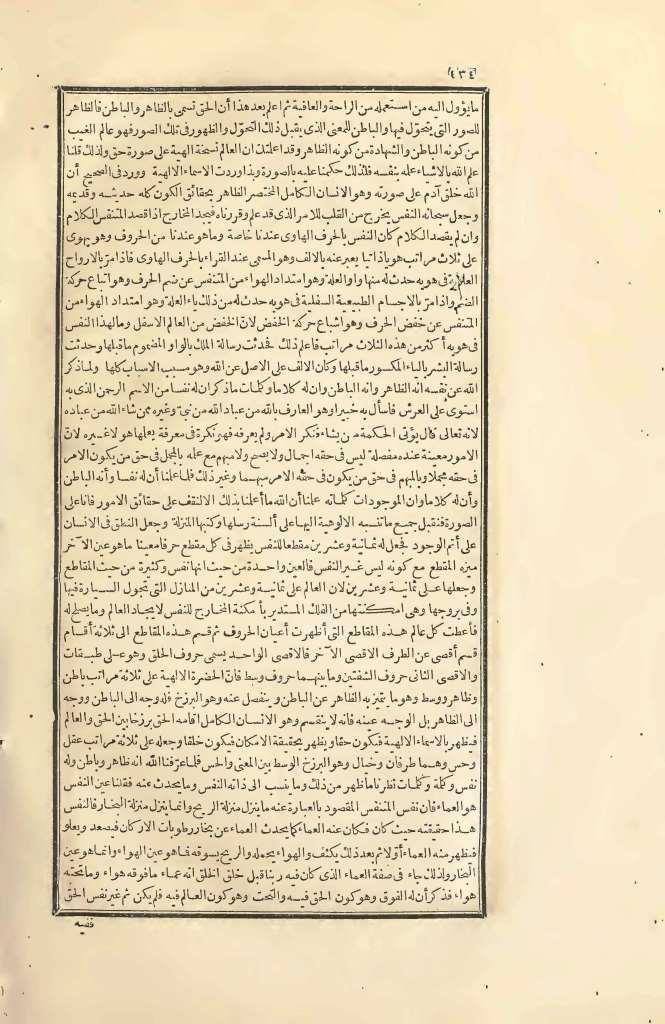 ٤٣٤
ما يؤول اليه من استعمله من الراحة والعافية ثم اعلم بعد هذا أن الحق تسمى بالظاهر والباطن فالظاهر
للصور التى يتحوّل فيها والباطن للمعنى الذى يقبل ذلك التحوّل والظهور فى تلك الصور فهو عالم الغيب
من كونه الباطن والشهادة من كونه الظاهر وقد اعلمتك ان العالم نسخة الهية على صورة حق ولذلك قلنا
علم الله بالاشياء علمه بنفسه فلذلك حكمنا عليه بالصورة وبذا وردت الاسماء الالهية وورد فى الصحيح أن
الله خلق آدم على صورته وهو الانسان الكامل المختصر الظاهر بحقائق الكون كله حديثه وقديمه
وجعل سبحانه النفس يخرج من القلب للامر الذى قد علم وقررناه فيجد المخارج اذا قصد المتنفس الكلام
وان لم يقصد الكلام كان النفس بالحرف الهاوى عندنا خاصة وما هو عندنا من الحروف وهو يهوى
على ثلاث مراتب هويا ذاتيا يعبر عنه بالالف وهو المسمى عند القراء بالحرف الهاوى فاذا مرّ بالارواح
العلوية فى هويه حدث له منها واو العلة وهو امتداد الهواء من المتنفس عن ضم الحرف وهو اشباع حركة
الضم واذا مرّ بالاجسام الطبيعية السفلية فى هويه حدث له من ذلك ياء العلة وهو امتداد الهواء من
المتنفس عن خفض الحرف وهو اشباع حركة الخفض لانّ الخفض من العالم الاسفل وما لهذا النفس
فى هويه أكثر من هذه الثلاث مراتب فاعلم ذلك فحدثت رسالة الملك بالواو المضموم ما قبلها وحدثت
رسالة البشر بالياء المكسور ما قبلها وكان الالف على الاصل عن الله وهو مسبب الاسباب كلها ولما ذكر
الله عن نفسه انه الظاهر وانه الباطن وان له كلاما وكلمات ما ذكر ان له نفسا من الاسم الرحمن الذى به
استوى على العرش فاسأل به خبيرا وهو العارف بالله من عباد الله من نبىّ وغيره ممن شاء الله من عباده
لانه تعالى قال يؤتى الحكمة من يشاء فنكر الامر ولم يعرفه فهو نكرة فى معرفة يعلمها هو لا غيره لان
الامور معينة عنده مفصلة ليس فى حقه اجمال ولا يصح ولا مبهم مع علمه بالمجمل فى حق من يكون الامر
فى حقه مجملا وبالمبهم فى حق من يكون فى حقه الامر مبهما وغير ذلك فلما علمنا أن له نفسا وأنه الباطن
وأن له كلاما وان الموجودات كلماته علمنا أن الله ما أعلمنا بذلك الا لنقف على حقائق الامور فانا على
الصورة فنقبل جميع ما تنسبه الالوهية اليها على ألسنة رسلها وكتبها المنزلة وجعل النطق فى الانسان
على أتم الوجود فجعل له ثمانية وعشرين مقطعا للنفس يظهر فى كل مقطع حرفا معينا ما هو عين الآخر
ميزه المقطع مع كونه ليس غير النفس فالعين واحدة من حيث انها نفس وكثيرة من حيث المقاطع
وجعلها على ثمانية وعشرين لان العالم على ثمانية وعشرين من المنازل التى تجول السيارة فيها
وفى بروجها وهى امكنتها من الفلك المستدير بأمكنة المخارج للنفس لايجاد العالم وما يصلح له
فأعطت كل عالم هذه المقاطع التى أظهرت أعيان الحروف ثم قسم هذه المقاطع الى ثلاثة أقسام
قسم أقصى عن الطرف الاقصى الآخر فالاقصى الواحد يسمى حروف الحلق وهو على طبقات
والاقصى الثانى حروف الشفتين وما بينهما حروف وسط فانّ الحضرة الالهية على ثلاثة مراتب باطن
وظاهر ووسط وهو ما يتميز به الظاهر عن الباطن وينفصل عنه وهو البرزخ فله وجه الى الباطن ووجه
الى الظاهر بل الوجه عينه فانه لا ينقسم وهو الانسان الكامل اقامه الحق برزخا بين الحق والعالم
فيظهر بالاسماء الالهية فيكون حقا ويظهر بحقيقة الامكان فيكون خلقا وجعله على ثلاثة مراتب عقل
وحس وهما طرفان وخيال وهو البرزخ الوسط بين المعنى والحس فلما عرّفنا الله انه ظاهر وباطن وله
نفس وكلمة وكلمات نظرنا ما ظهر من ذلك وما ينسب الى ذاته النفس وما يحدث عنه فقلنا عين النفس
هو العماء فان نفس المتنفس المقصود بالعبارة عنه ما يتنزل منزلة الريح وانما يتنزل منزلة البخار فالنفس
هذا حقيقته حيث كان فكان عنه العماء كما يحدث العماء عن بخار رطوبات الاركان فيصعد ويعلو
فيظهر منه العماء أوّلا ثم بعد ذلك يكثف والهواء يحمله والريح يسوقه فما هو عين الهواء وانما هو عين
البخار ولذلك جاء فى صفة العماء الذى كان فيه ربنا قبل خلق الخلق انه عماء ما فوقه هواء وما تحته
هواء فذكر أن له الفوق وهو كون الحق فيه والتحت وهو كون العالم فيه فلم يكن ثم غير نفس الحق
ففيه